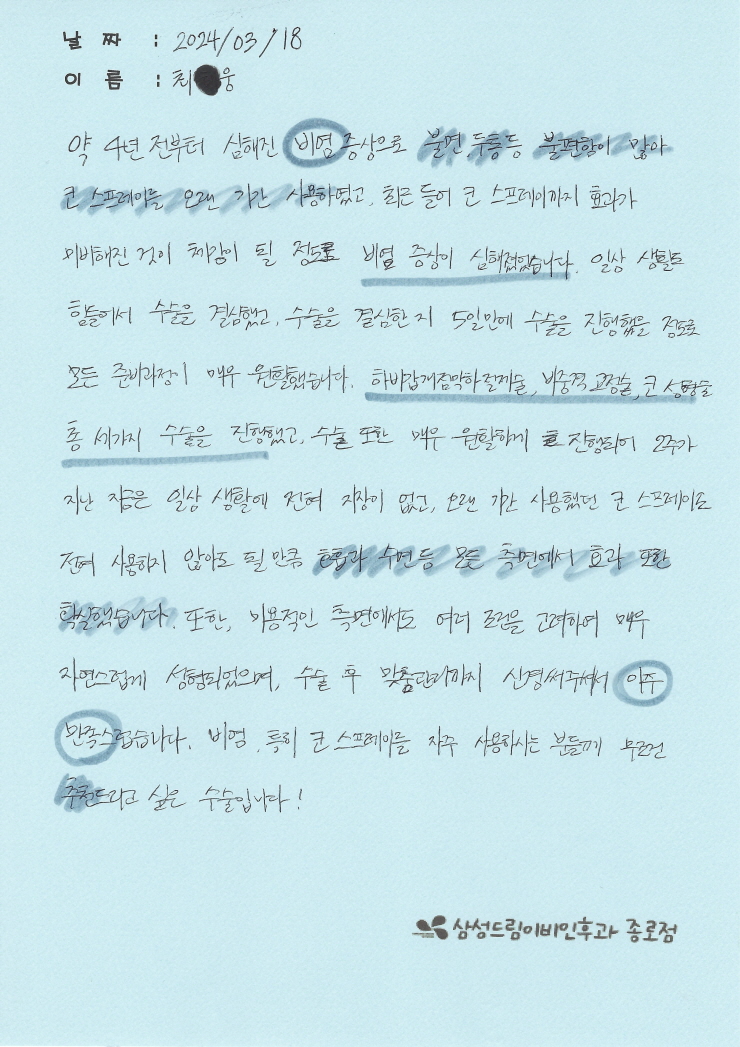 날 짜 : 2024/03/18
이 름 : 최 웅
약 4년 전부터 심해진 비염 증상으로 불면, 두통 등 불편함이 많아
코 스프레이를 오랜 기간 사용하였고, 최근 들어 코 스프레이까지 효과가
미비해진 것이 체감이 될 정도로 비염 증상이 심해졌었습니다. 일상 생활도
힘들어서 수술을 결심했고, 수술을 결심한 지 5일만에 수술을 진행했을 정도로
모든 준비과정이 매우 원활했습니다. 하비갑개점막하절제술, 비중격 교정술, 코 성형술
총 세가지 수술을 진행했고, 수술 또한 매우 원활하게 진행되어 2주가
지난 지금은 일상 생활에 전혀 지장이 없고, 오랜 기간 사용했던 코 스프레이도
전혀 사용하지 않아도 될 만큼 호흡과 수면 등 모든 측면에서 효과 또한
확실했습니다. 또한, 미용적인 측면에서도 여러 조건을 고려하여 매우
자연스럽게 성형되었으며, 수술 후 맞춤관리까지 신경써주셔서 아주
만족스럽습니다. 비염, 특히 코 스프레이를 자주 사용하시는 분들께 무조건
추천드리고 싶은 수술입니다!
삼성드림이비인후과 종로점